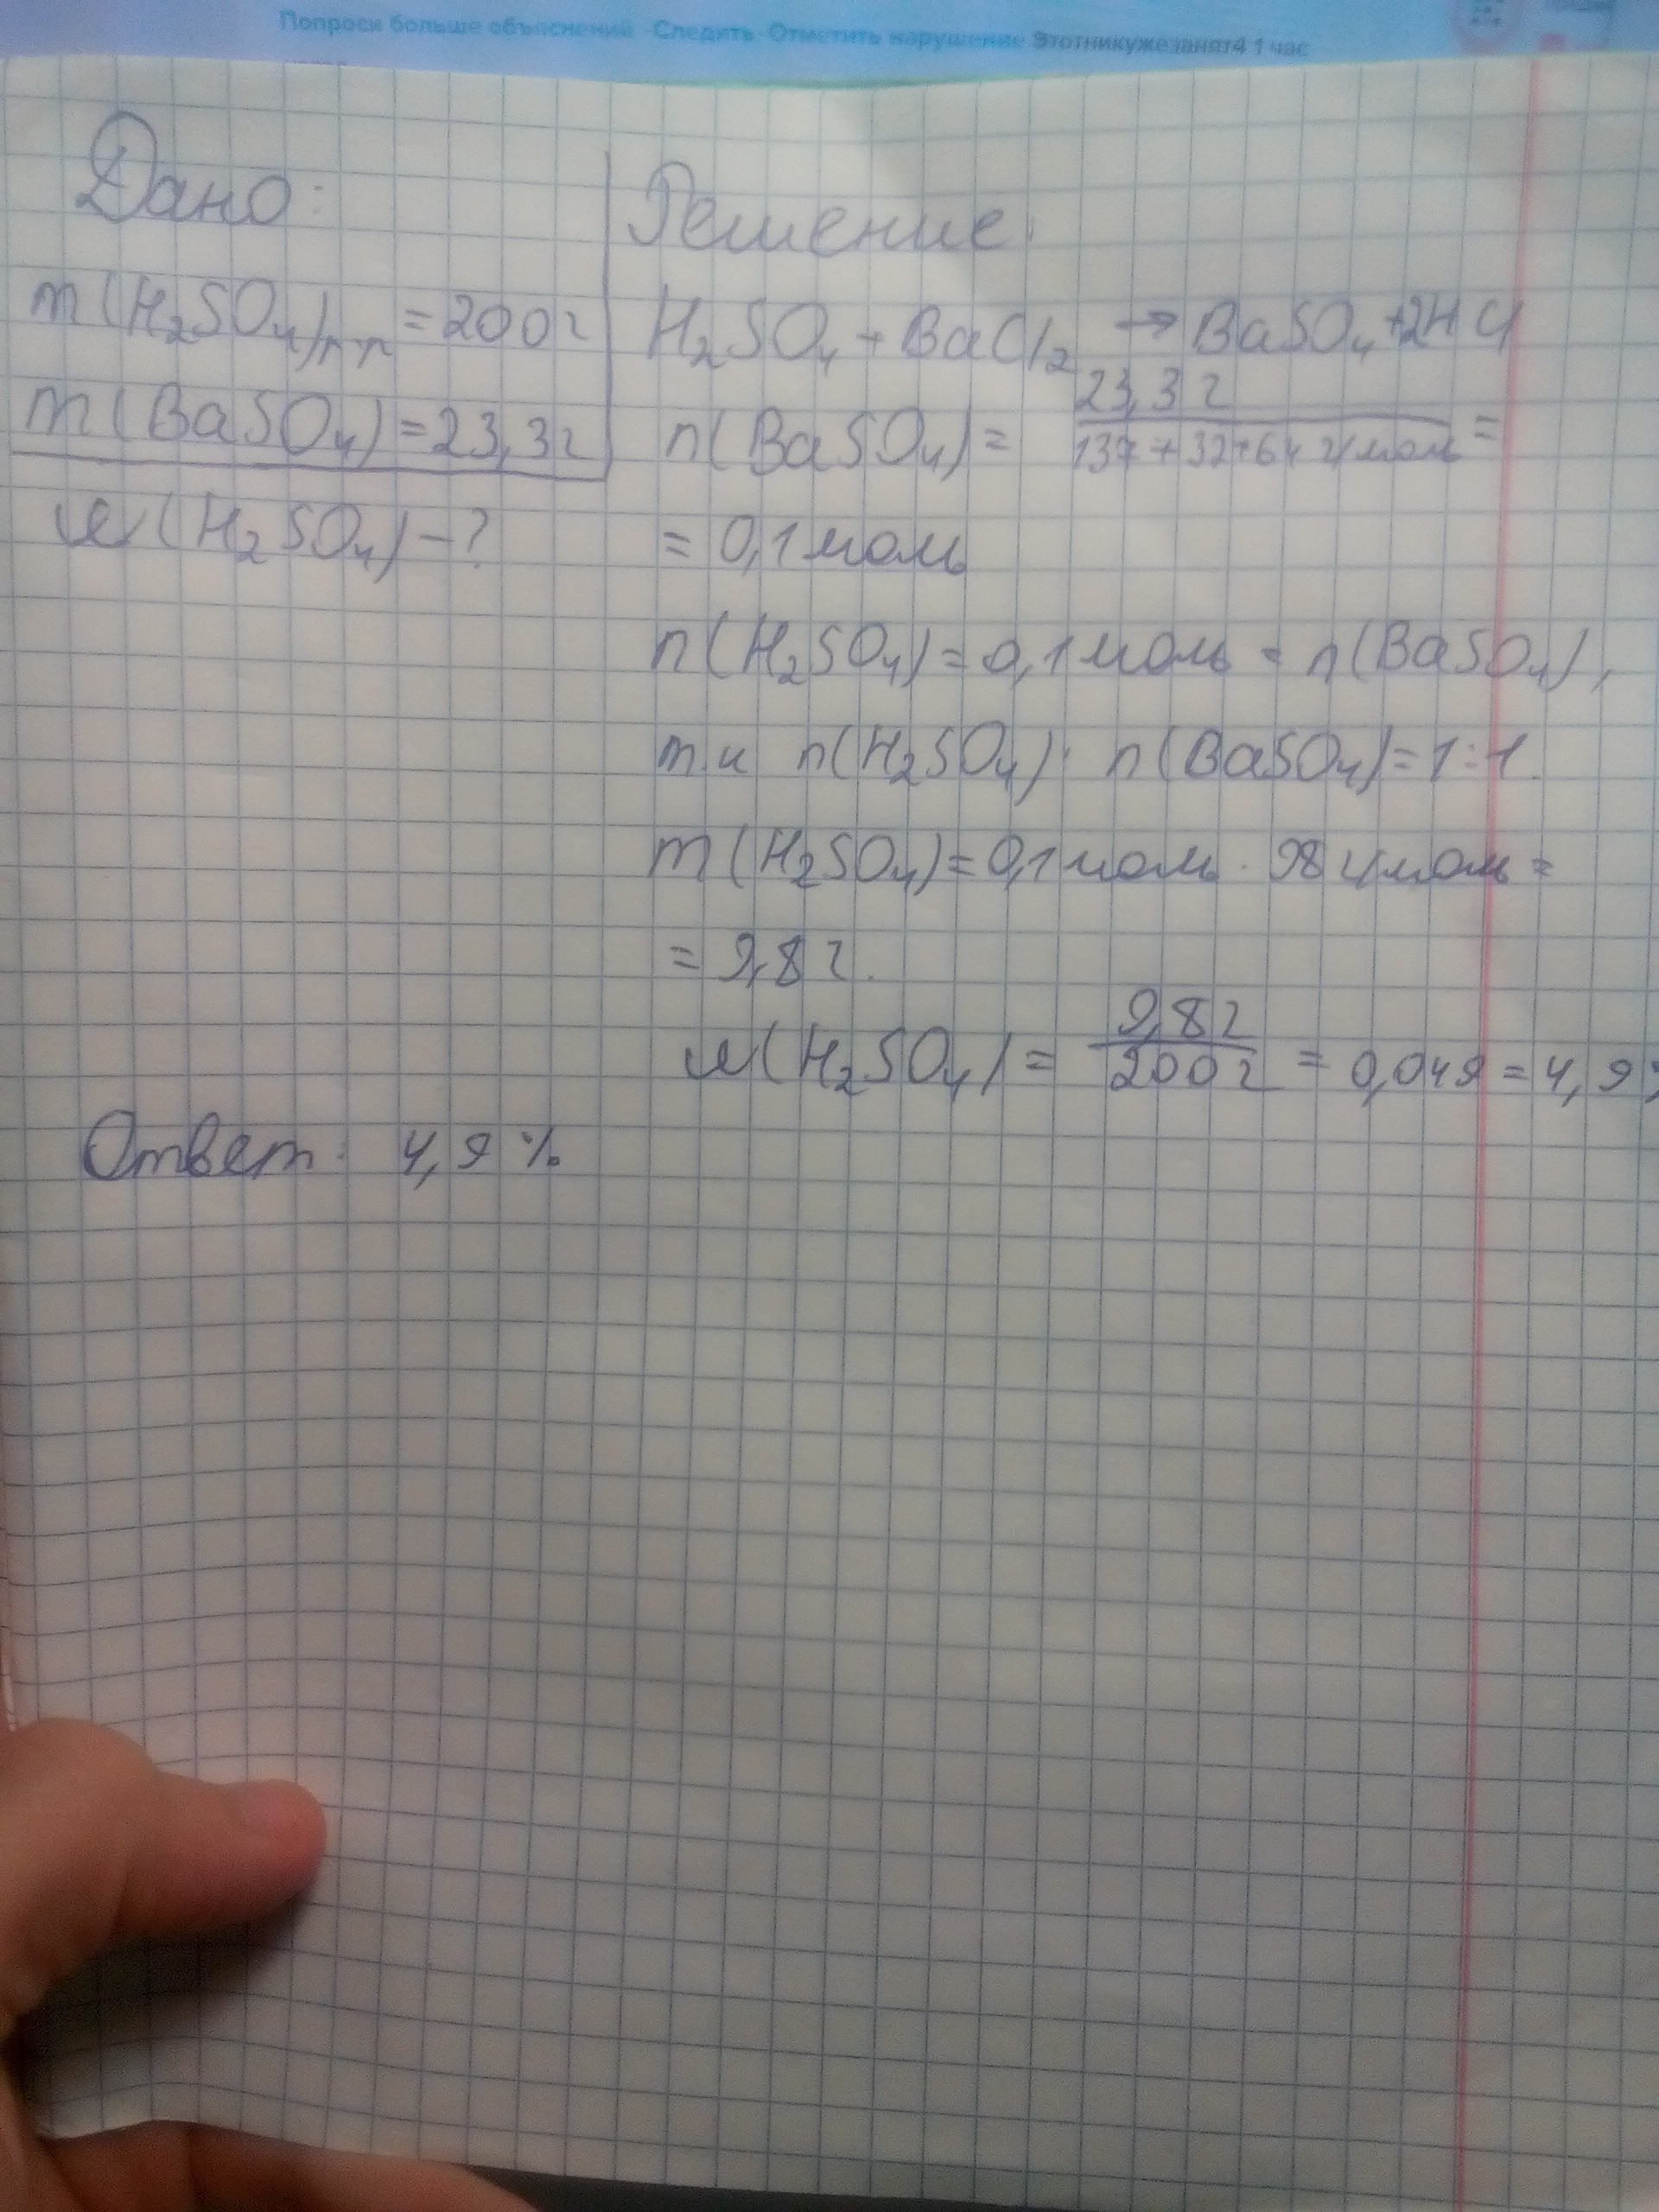 Попроси больше объяснений Следить Отметить нарушение Этотникужезанят4 1 час
Дано:
m(H₂SO₄)р-р = 200г
m(BaSO₄) = 23,3г
w(H₂SO₄) - ?
Решение:
H₂SO₄ + BaCl₂ → BaSO₄ + 2HCl
n(BaSO₄) = 23,3 г / 137+32+64 г/моль =
= 0,1 моль
n(H₂SO₄) = 0,1 моль = n(BaSO₄),
т.к n(H₂SO₄) : n(BaSO₄) = 1:1.
m(H₂SO₄) = 0,1 моль · 98 г/моль =
= 9,8 г.
w(H₂SO₄) = 9,8 г / 200 г = 0,049 = 4,9%
Ответ: 4,9 %